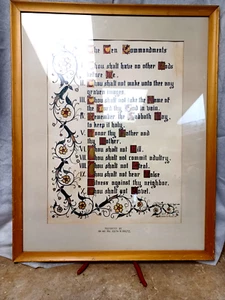 The Ten Commandments
I. Thou shalt have no other Gods
before Me.
II. Thou shalt not make unto thee any
graven images.
III. Thou shalt not take the Name of
the Lord thy God in vain.
IV. Remember the Sabbath Day,
to keep it holy.
V. Honor thy Father and
thy Mother.
VI. Thou shalt not Kill.
VII. Thou shalt not commit adultry.
VIII. Thou shalt not Steal.
IX. Thou shalt not bear False
Witness against thy neighbor.
X. Thou shalt not Covet.